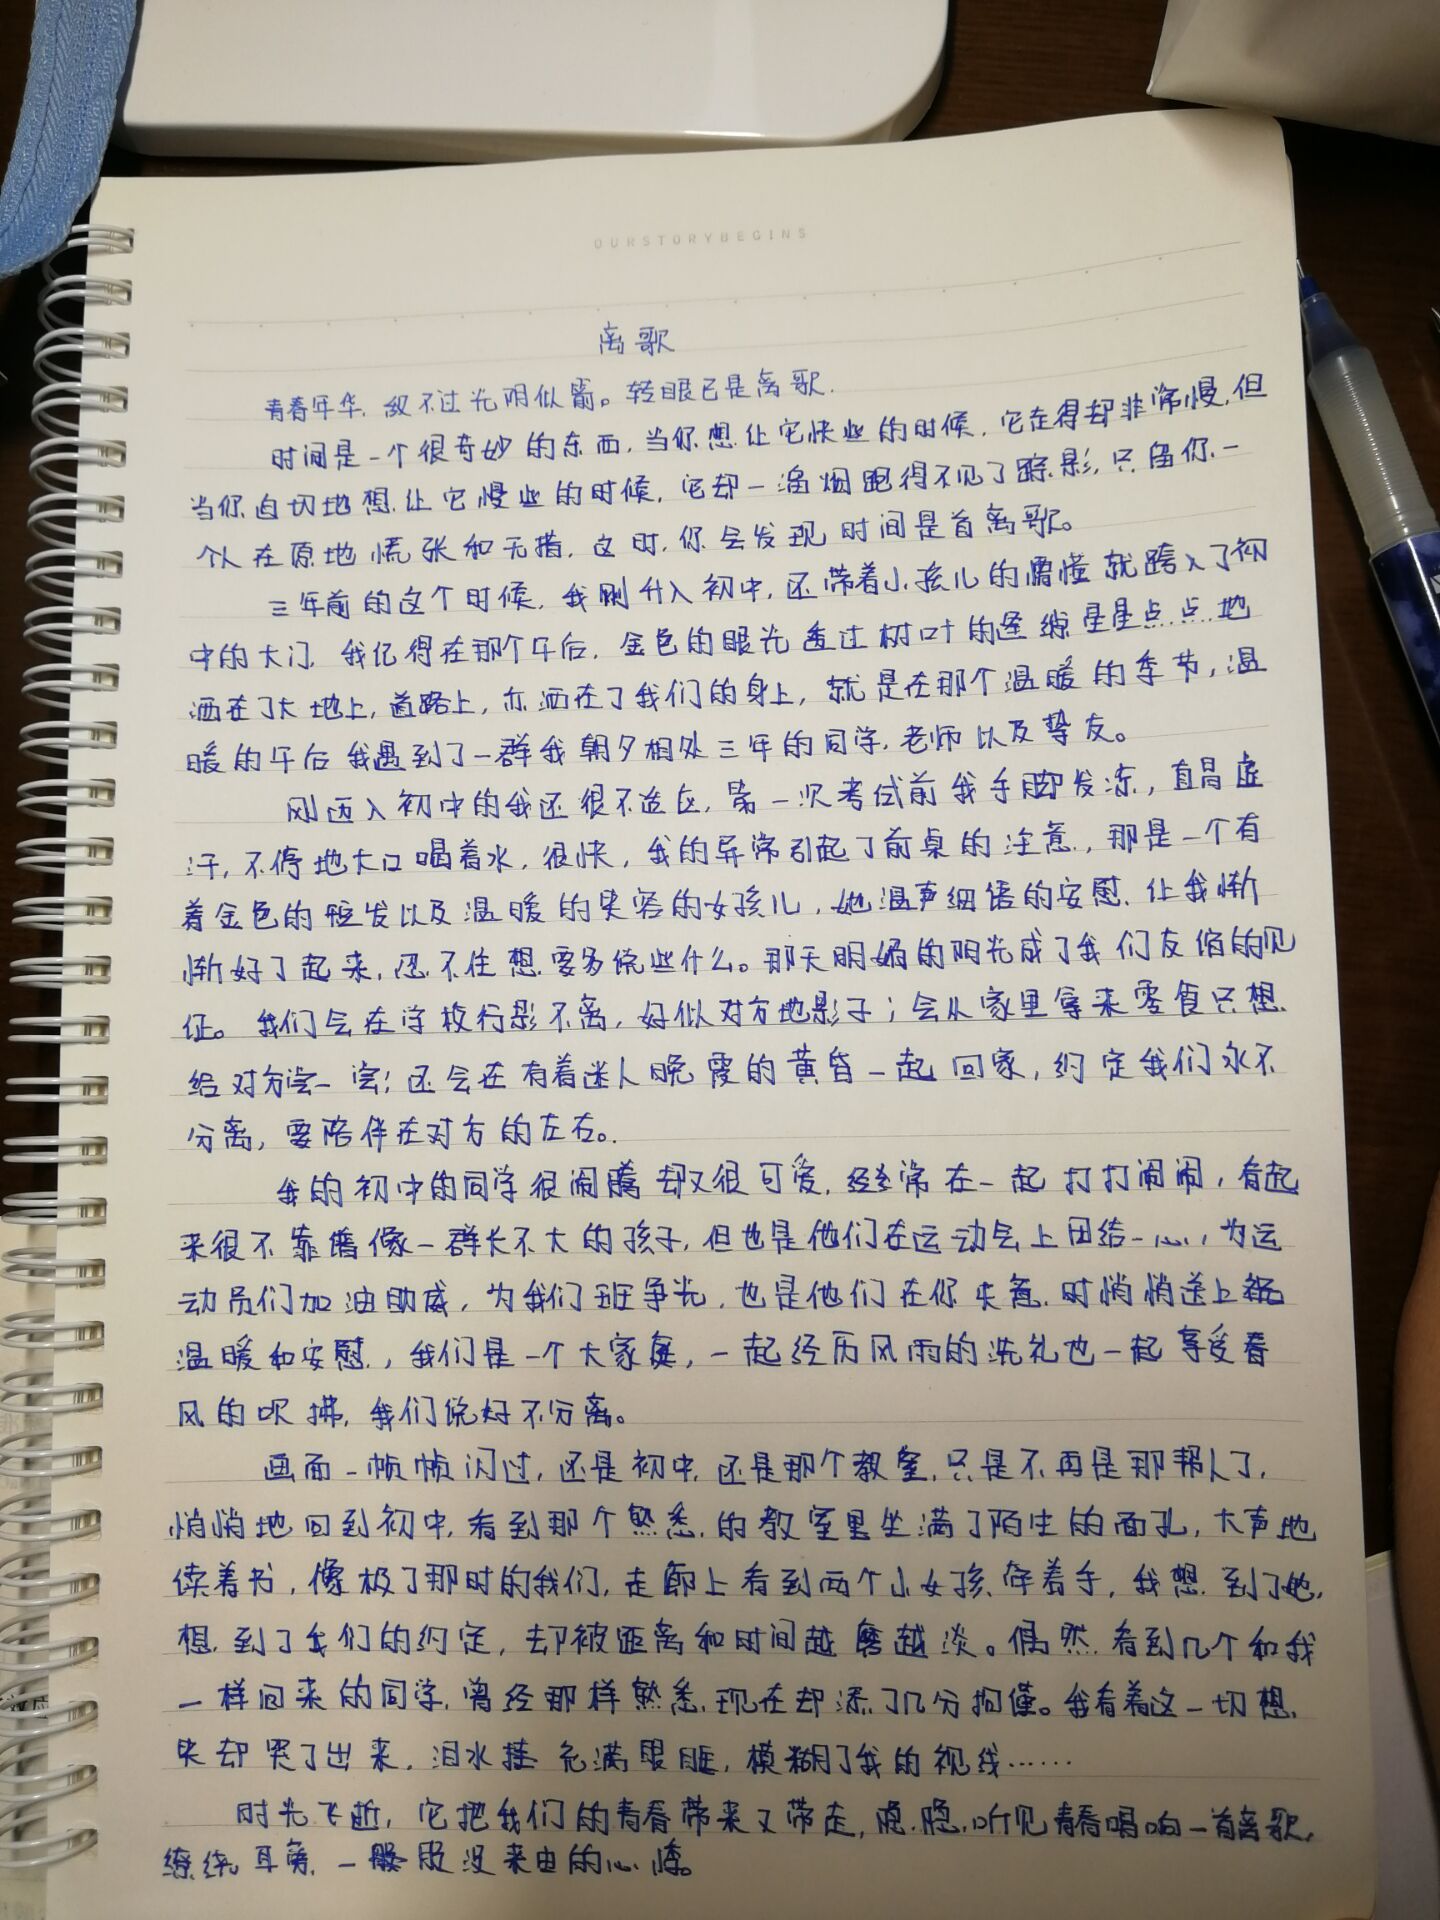 OURSTORYBEGINS
离歌
青春年华,敌不过光阴似箭。转眼已是离歌.
时间是一个很奇妙的东西,当你想让它快些的时候,它走得却非常慢,但
当你迫切地想让它慢些的时候,它却一溜烟跑得不见了踪影,只留你一
个人在原地慌张和无措,这时,你会发现时间是首离歌。
三年前的这个时候,我刚升入初中,还带着小孩儿的懵懂就跨入了初
中的大门,我记得在那个午后,金色的眼光透过树叶的缝隙星星点点地
洒在了大地上,道路上,亦洒在了我们的身上,就是在那个温暖的季节,温
暖的午后我遇到了一群我朝夕相处三年的同学,老师以及挚友。
刚迈入初中的我还很不适应,第一次考试前我手脚发冻,直冒虚
汗,不停地大口喝着水,很快,我的异常引起了前桌的注意,那是一个有
着金色的短发以及温暖的笑容的女孩儿,她温声细语的安慰,让我渐
渐好了起来,忍不住想要多说些什么。那天明媚的阳光成了我们友谊的见
证。我们会在学校行影不离,好似对方地影子;会从家里拿来零食只想
给对方尝一尝;还会在有着迷人晚霞的黄昏一起回家,约定我们永不
分离,要陪伴在对方的左右。
我的初中的同学很闹腾却又很可爱,经常在一起打打闹闹,看起
来很不靠谱像一群长不大的孩子,但也是他们在运动会上团结一心,为运
动员们加油助威,为我们班争光,也是他们在你失意时悄悄送上
温暖和安慰,我们是一个大家庭,一起经历风雨的洗礼也一起享受春
风的吹拂,我们说好不分离。
画面一帧帧闪过,还是初中,还是那个教室,只是不再是那帮人了,
悄悄地回到初中,看到那个熟悉的教室里坐满了陌生的面孔,大声地
读着书,像极了那时的我们,走廊上看到两个小女孩牵着手,我想到了她,
想到了我们的约定,却被距离和时间越磨越淡。偶然看到几个和我
一样回来的同学,曾经那样熟悉,现在却添了几分拘谨。我看着这一切想
笑却哭了出来,泪水充满眼眶,模糊了我的视线……
时光飞逝,它把我们的青春带来又带走,隐隐听见青春唱响一首离歌,
缭绕耳旁,一股没来由的心悸。